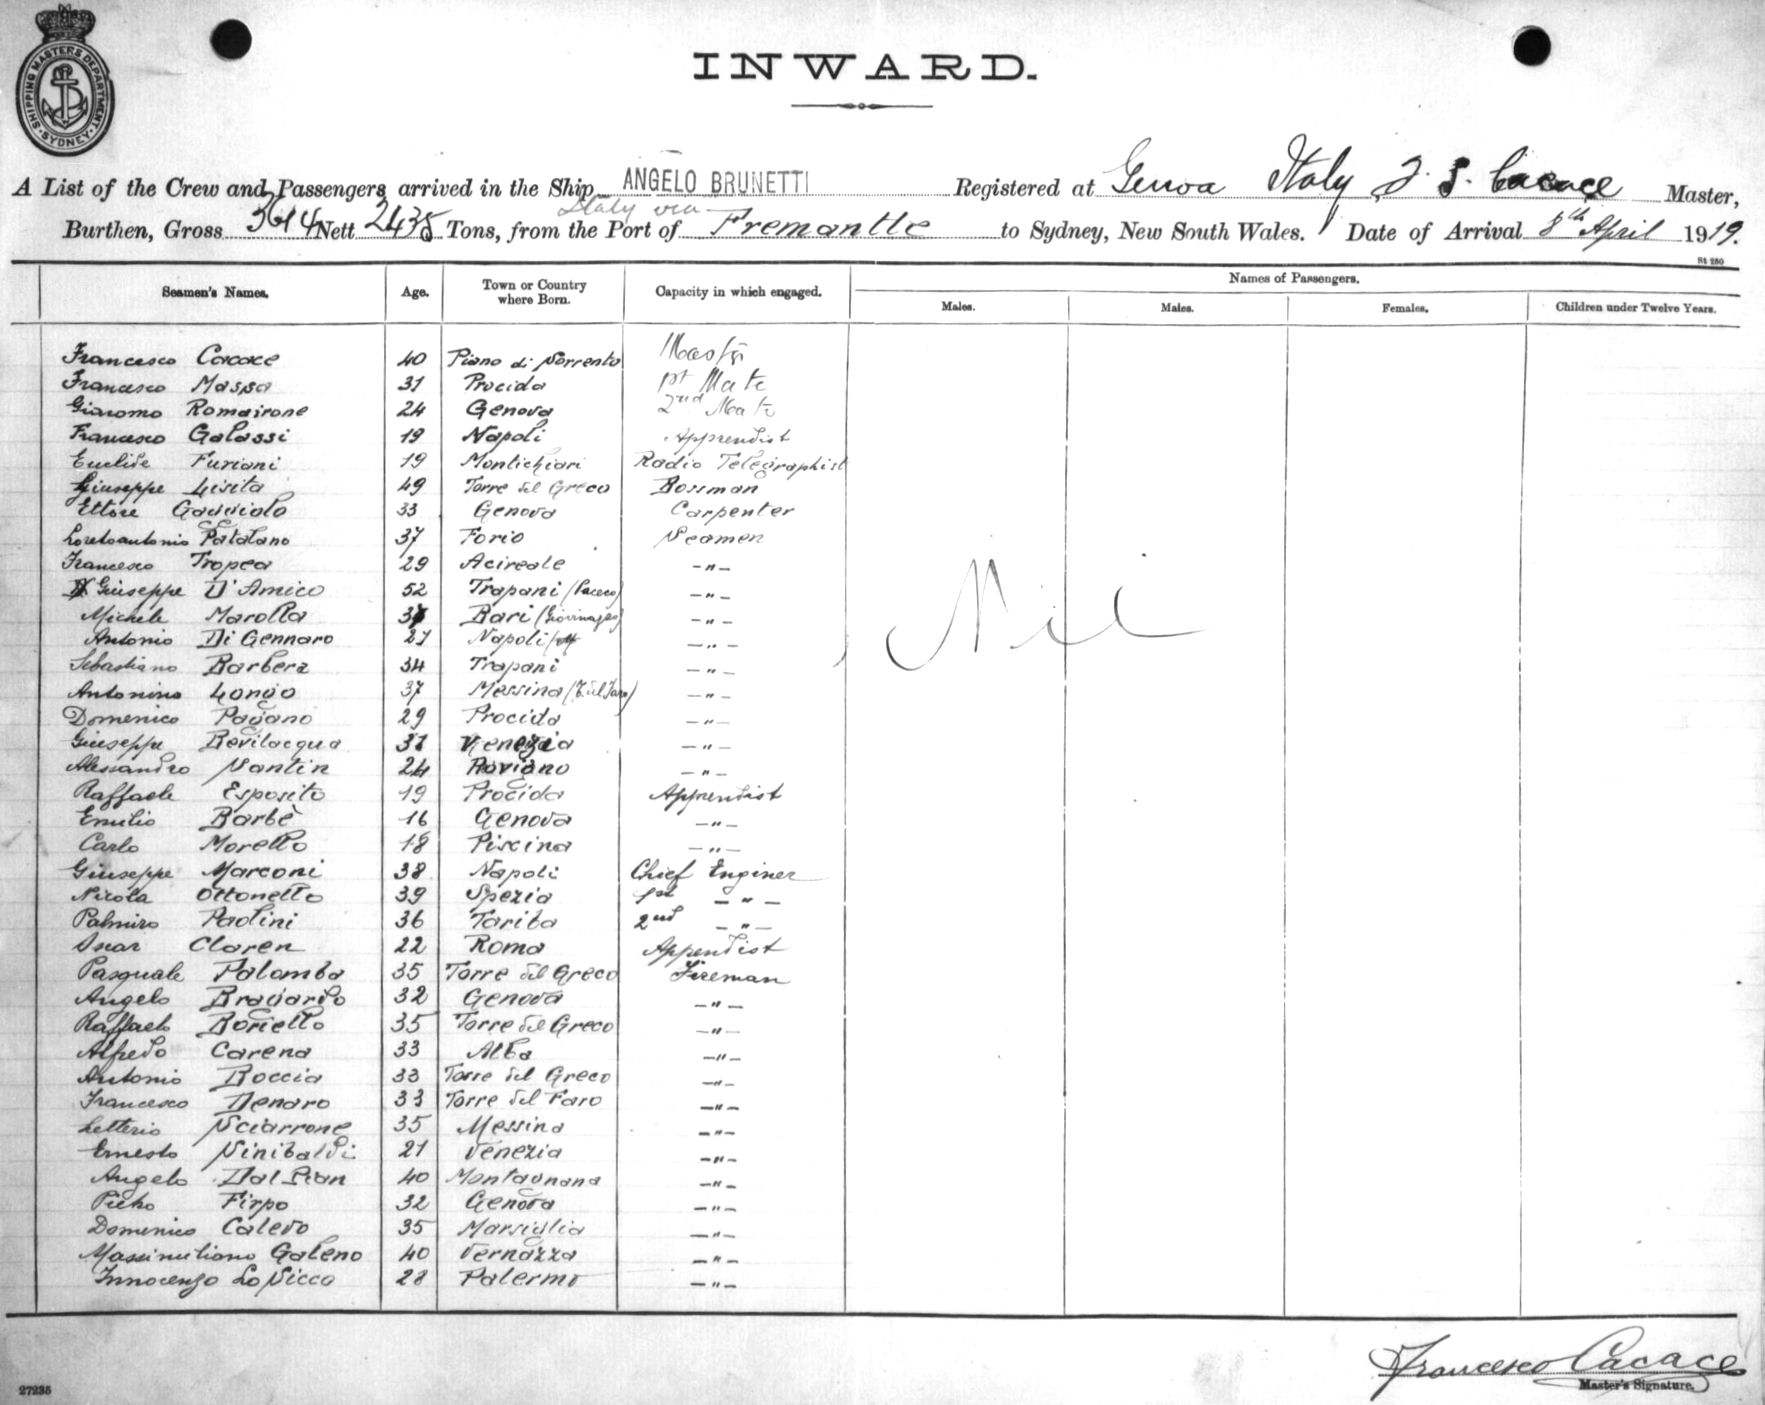 SHIPPING MASTERS DEPARTMENT SYDNEY
INWARD.
A List of the Crew and Passengers arrived in the Ship ANGELO BRUNETTI Registered at Genoa Italy Cacace Master,
Italy via
Burthen, Gross 3614 Nett 2435 Tons, from the Port of Fremantle to Sydney, New South Wales. Date of Arrival 8th April 1919.
St 250
Names of Passengers.
Seamen's Names. Age. Town or Country where Born. Capacity in which engaged. Males. Males. Females. Children under Twelve Years.
Francesco Cacace 40 Piano di Sorrento Master
Francesco Massa 31 Procida 1st Mate
Giacomo Romairone 24 Genova 2nd Mate
Francesco Galassi 19 Napoli Apprendist
Euclide Furiani 19 Montichiari Radio Telegraphist
Giuseppe Lisita 49 Torre del Greco Bosman
Ettore Gaggiolo 33 Genova Carpenter
Loretoantonio Patalano 37 Forio Seamen
Francesco Tropea 29 Acireale -"-
Giuseppe D'Amico 52 Trapani (Paceco) -"-
Michele Marolla Bari (Giovinazzo) -"-
Antonio Di Gennaro 27 Napoli -"-
Nil
Sebastiano Barbera 34 Trapani -"-
Antonino Longo 37 Messina (T. del Faro) -"-
Domenico Pagano 29 Procida -"-
Giuseppe Bevilacqua 31 Venezia -"-
Alessandro Santin 24 Rovigno -"-
Raffaele Esposito 19 Procida Apprendist
Emilio Barbè 16 Genova -"-
Carlo Moretto 18 Piscina -"-
Giuseppe Marconi 38 Napoli Chief Enginer
Nicola Ottonello 39 Spezia 1st -"-
Palmiro Paolini 36 2nd -"-
Oscar Claren 22 Roma Appendist
Pasquale Palomba 35 Torre del Greco Fireman
Angelo Bragardo 32 Genova -"-
Raffaele Boriello 35 Torre del Greco -"-
Alfredo Carena 33 Alba -"-
Antonio Boccia 33 Torre del Greco -"-
Francesco Denaro 33 Torre del Faro -"-
Letterio Sciarrone 35 Messina -"-
Ernesto Sinibaldi 21 Venezia -"-
Angelo Dal Pian 40 Montagnana -"-
Pietro Firpo 32 Genova -"-
Domenico Calevo 35 Marsiglia -"-
Massimiliano Galeno 40 Vernazza -"-
Innocenzo Lo Sicco 28 Palermo -"-
Francesco Cacace
Master's Signature.
27235